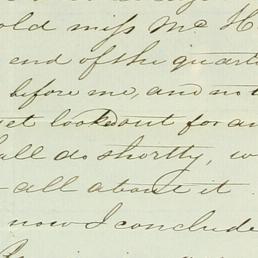 old miss Mc H
end of the quart
before me, and not
et looked out for an
all do shortty, w
all about it
now I conclude